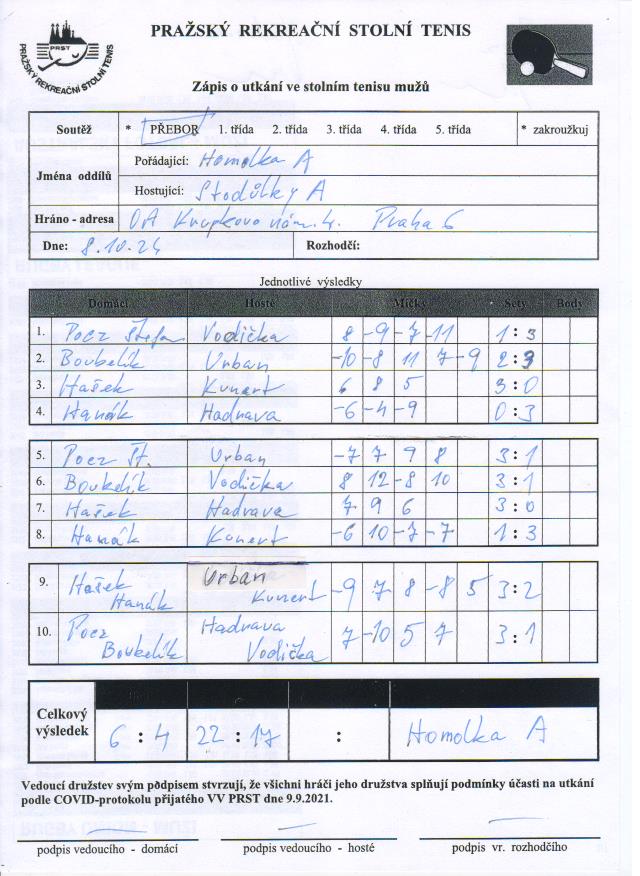 PRAŽSKÝ REKREAČNÍ STOLNÍ TENIS
PRST
PRAŽSKÝ REKREAČNÍ STOLNÍ TENIS
Zápis o utkání ve stolním tenisu mužů
Soutěž * PŘEBOR 1. třída 2. třída 3. třída 4. třída 5. třída * zakroužkuj
Jména oddílů Pořádající: Homolka A
Hostující: Stodůlky A
Hráno - adresa OA Krupkovo nám. 4. Praha 6
Dne: 8.10.24 Rozhodčí:
Jednotlivé výsledky
Domácí Hosté Míčky Sety Body
1. Pocz Štefan Vodička 8 -9 -7 -11 1:3
2. Boubelík Urban -10 -8 11 7 -9 2:3
3. Hašek Kunert 6 8 5 3:0
4. Hanák Hadrava -6 -4 -9 0:3
5. Pocz Št. Urban -7 7 9 8 3:1
6. Boubelík Vodička 8 12 -8 10 3:1
7. Hašek Hadrava 7 9 6 3:0
8. Hanák Kunert -6 10 -7 -7 1:3
9. Hašek Urban
Hanák Kunert -9 7 8 -8 5 3:2
10. Pocz Hadrava
Boubelík Vodička 7 -10 5 7 3:1
Celkový výsledek 6:4 22:17 : Homolka A
Vedoucí družstev svým podpisem stvrzují, že všichni hráči jeho družstva splňují podmínky účasti na utkání
podle COVID-protokolu přijatého VV PRST dne 9.9.2021.
podpis vedoucího - domácí podpis vedoucího - hosté podpis vr. rozhodčího